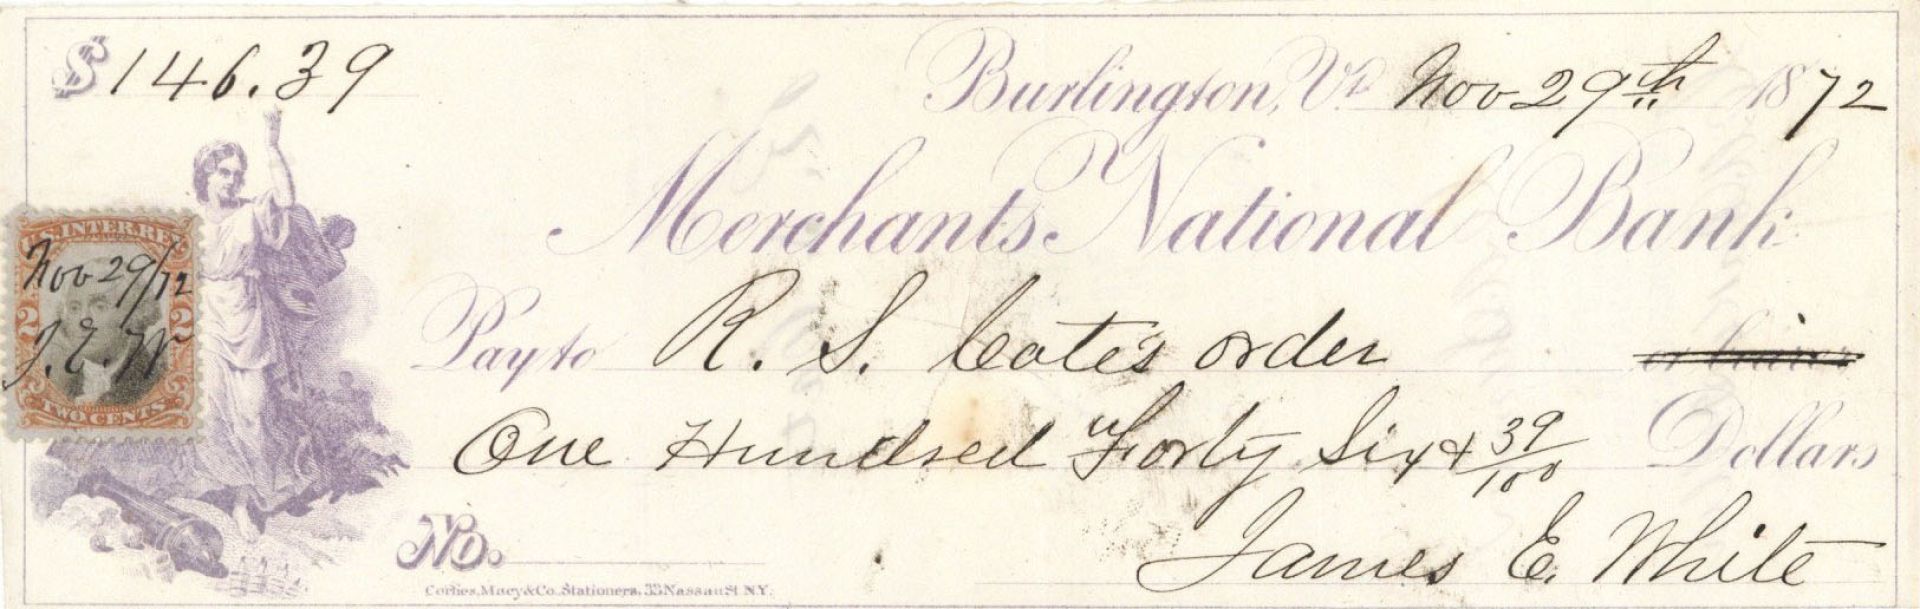 $146.39
Burlington, Vt. Nov 29th 1872
Merchants National Bank
U.S. INTER. REV.
Nov 29/72
2 2
J. E. W
TWO CENTS
Pay to R. S. Cote's order or bearer
One Hundred Forty Six & 39/100 Dollars
No.
James E. White
Corlies, Macy & Co. Stationers, 33 Nassau St. N.Y.